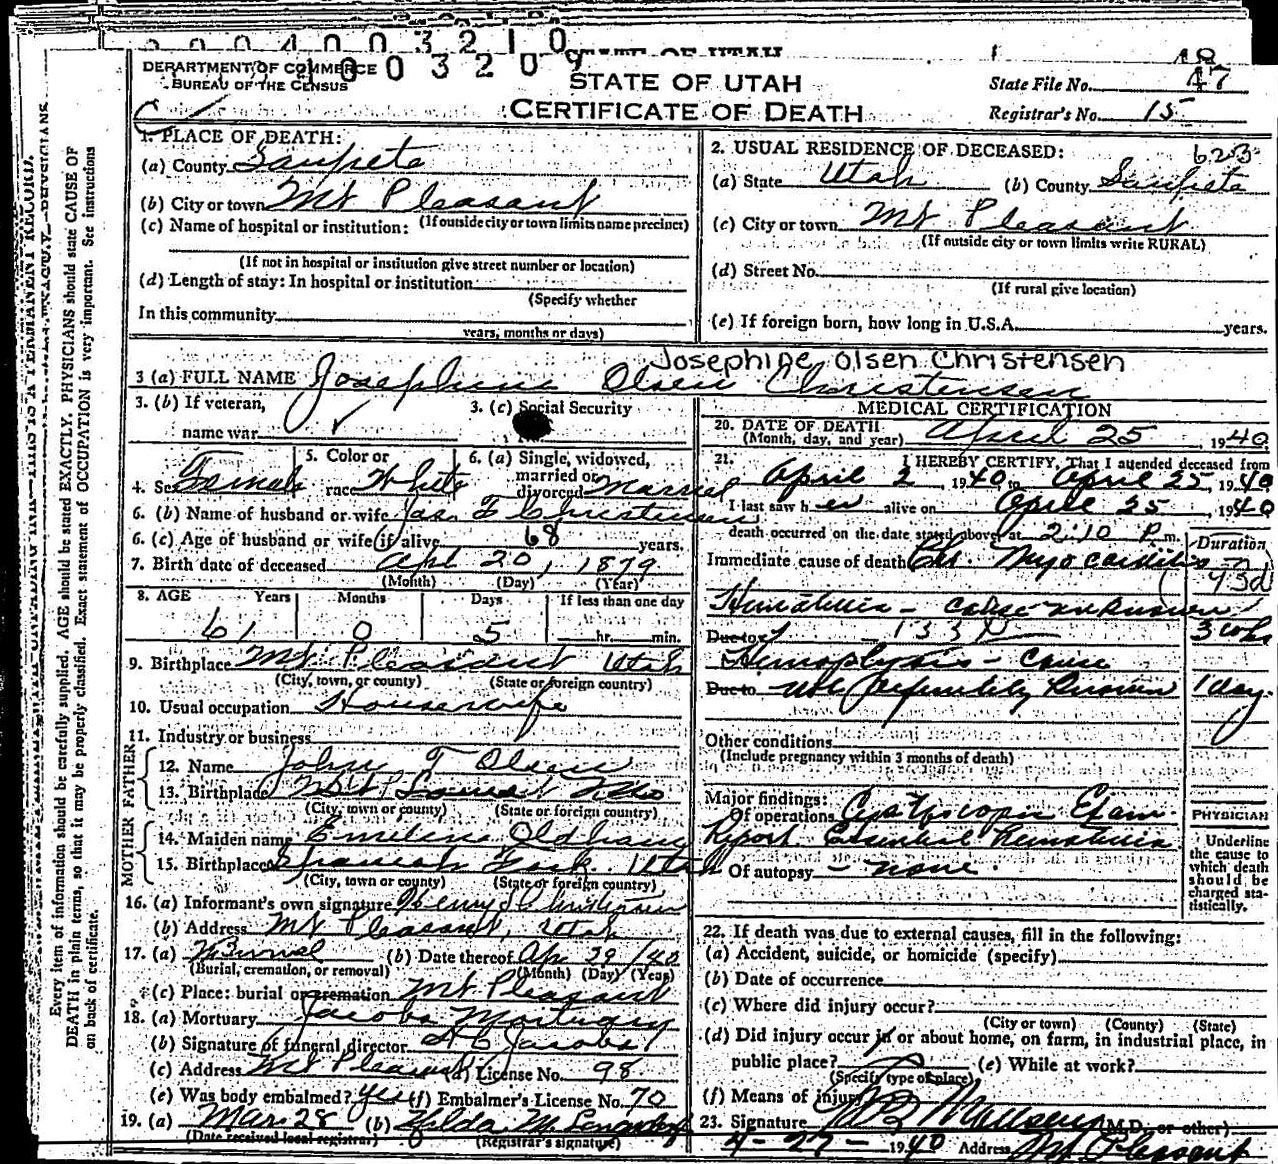 0 0 0 4 0 0 3 2 1 0
STATE OF UTAH
18
DEPARTMENT OF COMMERCE
BUREAU OF THE CENSUS
1 0 0 3 2 0 9
STATE OF UTAH
CERTIFICATE OF DEATH
State File No. 47
Registrar's No. 15
1. PLACE OF DEATH:
(a) County Sanpete
(b) City or town Mt Pleasant
(If outside city or town limits name precinct)
(c) Name of hospital or institution:
(If not in hospital or institution give street number or location)
(d) Length of stay: In hospital or institution
(Specify whether
In this community
years, months or days)
2. USUAL RESIDENCE OF DECEASED: 623
(a) State Utah (b) County Sanpete
(c) City or town Mt Pleasant
(If outside city or town limits write RURAL)
(d) Street No.
(If rural give location)
(e) If foreign born, how long in U.S.A. years.
Josephine Olsen Christensen
3 (a) FULL NAME Josephine Olsen Christensen
3. (b) If veteran,
name war
3. (c) Social Security
4. Sex Female 5. Color or race White 6. (a) Single, widowed, married or divorced Married
6. (b) Name of husband or wife Jas. F Christensen
6. (c) Age of husband or wife if alive 68 years.
7. Birth date of deceased Apr 20, 1879
(Month) (Day) (Year)
8. AGE Years Months Days If less than one day
61 0 5 hr. min.
9. Birthplace Mt Pleasant Utah
(City, town, or county) (State or foreign country)
10. Usual occupation Housewife
11. Industry or business
FATHER
12. Name John F Olsen
13. Birthplace
(City, town or county) (State or foreign country)
MOTHER
14. Maiden name Emeline Oldham
15. Birthplace Spanish Fork Utah
(City, town or county) (State or foreign country)
16. (a) Informant's own signature Henry Christensen
(b) Address Mt Pleasant, Utah
17. (a) Burial (b) Date thereof Apr 29/40
(Burial, cremation, or removal) (Month) (Day) (Year)
(c) Place: burial or cremation Mt Pleasant
18. (a) Mortuary Jacobs Mortuary
(b) Signature of funeral director A C Jacobs
(c) Address Mt Pleasant (d) License No. 98
(e) Was body embalmed? yes (f) Embalmer's License No. 70
19. (a) Mar 28 (b) Hilda M
(Date received local registrar) (Registrar's signature)
MEDICAL CERTIFICATION
20. DATE OF DEATH
(Month, day, and year) April 25, 1940
21. I HEREBY CERTIFY, That I attended deceased from
April 2, 1940 to April 25, 1940
I last saw her alive on April 25 1940
death occurred on the date stated above at 2:10 P.m.
Duration
Immediate cause of death Chr. Myocarditis
Hematuria - cause unknown
Due to 133 3 wks
Hemoptysis - cause
Due to not definitely known 1 day
Other conditions
(Include pregnancy within 3 months of death)
Major findings:
Of operations Cystoscopic Exam.
Report Essential Hematuria
Of autopsy - none.
PHYSICIAN
Underline
the cause to
which death
should be
charged sta-
tistically.
22. If death was due to external causes, fill in the following:
(a) Accident, suicide, or homicide (specify)
(b) Date of occurrence
(c) Where did injury occur?
(City or town) (County) (State)
(d) Did injury occur in or about home, on farm, in industrial place, in
public place? (e) While at work?
(Specify type of place)
(f) Means of injury
23. Signature (M.D. or other)
4-27-1940 Address Mt Pleasant
Every item of information should be carefully supplied. AGE should be stated EXACTLY. PHYSICIANS should state CAUSE OF
DEATH in plain terms, so that it may be properly classified. Exact statement of OCCUPATION is very important. See instructions
on back of certificate.